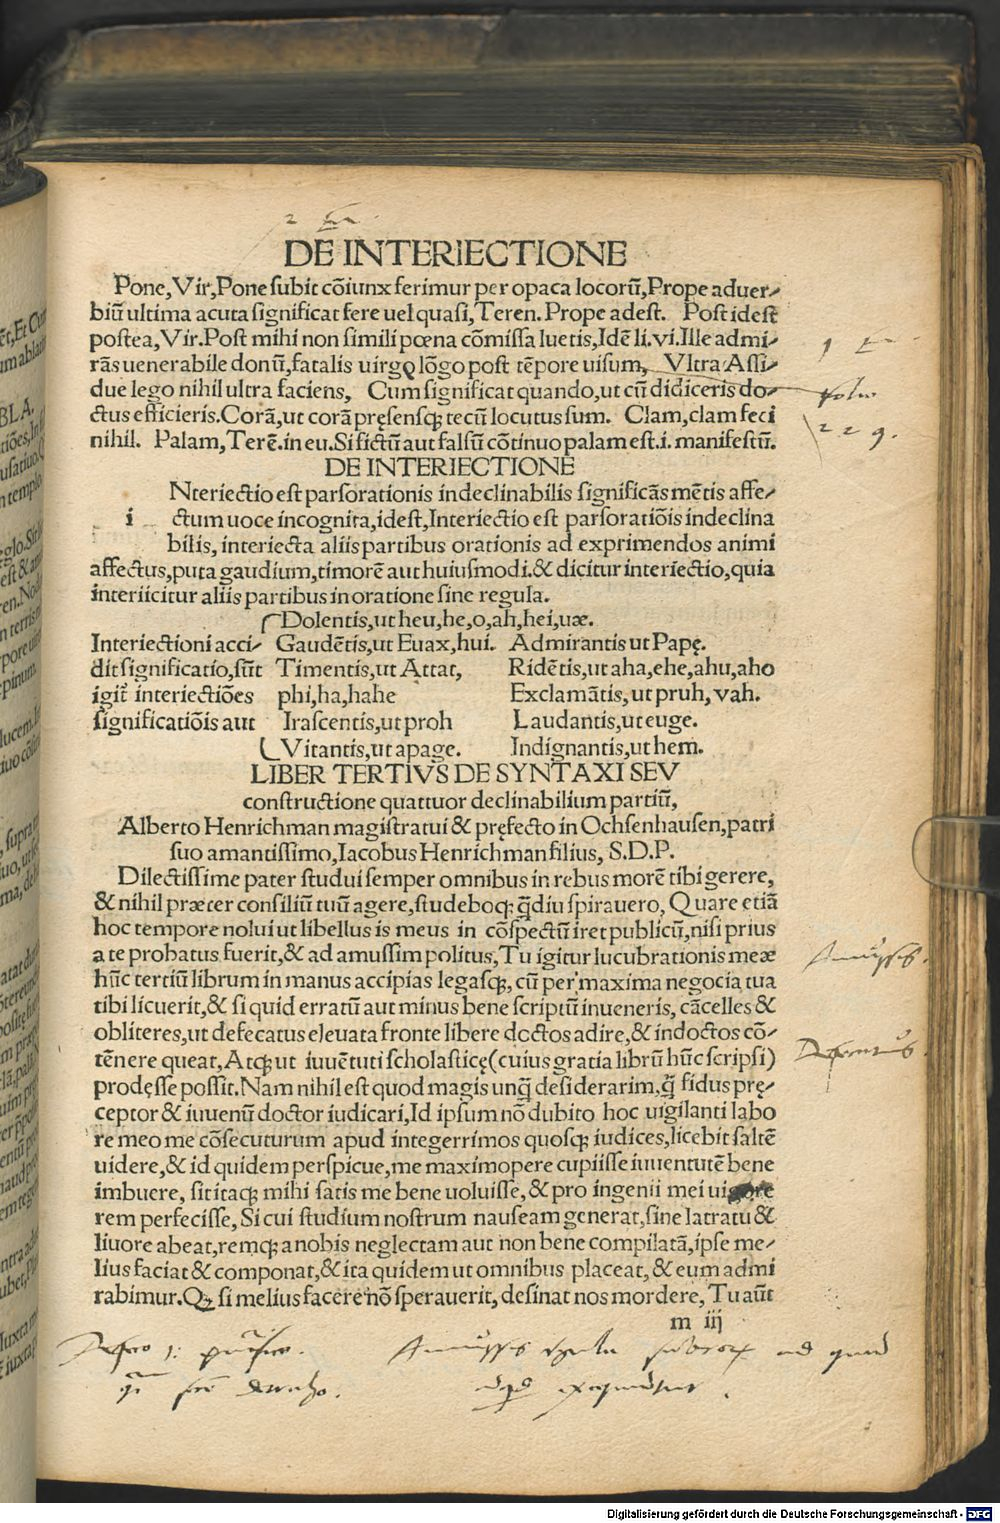 DE INTERIECTIONE
Pone,Vir,Pone subit cõiunx ferimur per opaca locorũ,Prope aduer⸗
biũ ultima acuta significat fere uel quasi,Teren. Prope adest. Post idest
postea,Vir.Post mihi non simili pœna cõmissa luetis,Idẽ li.vi.Ille admi⸗
rãs uenerabile donũ,fatalis uirgꝙ lõgo post tẽpore uisum, Vltra Assi⸗
due lego nihil ultra faciens, Cum significat quando,ut cũ didiceris do⸗
ctus efficieris.Corã,ut corã pręsensqꝫ tecũ locutus sum. Clam,clam feci
nihil. Palam,Terẽ.in eu.Si fictũ aut falsũ cõtinuo palam est.i.manifestũ.
DE INTERIECTIONE
Nteriectio est pars orationis indeclinabilis significãs mẽtis affe⸗
i ctum uoce incognita,idest,Interiectio est pars oratiõis indeclina
bilis, interiecta aliis partibus orationis ad exprimendos animi
affectus,puta gaudium,timorẽ aut huiusmodi.& dicitur interiectio,quia
interiicitur aliis partibus in oratione sine regula.
Dolentis,ut heu,he,o,ah,hei,uæ.
Interiectioni acci⸗ Gaudẽtis,ut Euax,hui. Admirantis ut Papę.
dit significatio,sũt Timentis,ut Attat, Ridẽtis,ut aha,ehe,ahu,aho
igit̃ interiectiões phi,ha,hahe Exclamãtis,ut pruh, vah.
significatiõis aut Irascentis,ut proh Laudantis,ut euge.
Vitantis,ut apage. Indignantis,ut hem.
LIBER TERTIVS DE SYNTAXI SEV
constructione quattuor declinabilium partiũ,
Alberto Henrichman magistratui & pręfecto in Ochsenhausen,patri
suo amantissimo,Iacobus Henrichman filius, S.D.P.
Dilectissime pater studui semper omnibus in rebus morẽ tibi gerere,
& nihil præter consiliũ tuũ agere,studeboqꝫ q̃diu spirauero, Quare etiã
hoc tempore nolui ut libellus is meus in cõspectũ iret publicũ,nisi prius
a te probatus fuerit,& ad amussim politus,Tu igitur lucubrationis meæ
hũc tertiũ librum in manus accipias legasqꝫ, cũ per maxima negocia tua
tibi licuerit,& si quid erratũ aut minus bene scriptũ inueneris, cãcelles &
obliteres,ut defecatus eleuata fronte libere doctos adire,& indoctos cõ⸗
tẽnere queat,Atqꝫ ut iuuẽtuti scholasticę(cuius gratia librũ hũc scripsi)
prodęsse possit.Nam nihil est quod magis unq̃ desiderarim,q̃ fidus prę⸗
ceptor & iuuenũ doctor iudicari,Id ipsum nõ dubito hoc uigilanti labo
re meo me cõsecuturum apud integerrimos quosqꝫ iudices,licebit saltẽ
uidere,& id quidem perspicue,me maximopere cupiisse iuuentutẽ bene
imbuere, sit itaqꝫ mihi satis me bene uoluisse, & pro ingenii mei uigore
rem perfecisse, Si cui studium nostrum nauseam generat,sine latratu &
liuore abeat,remqꝫ a nobis neglectam aut non bene compilatã,ipse me⸗
lius faciat & componat,& ita quidem ut omnibus placeat, & eum admi
rabimur.Qꝫ si melius facere nõ sperauerit, desinat nos mordere, Tu aũt
m iij
Digitalisierung gefördert durch die Deutsche Forschungsgemeinschaft - DFG